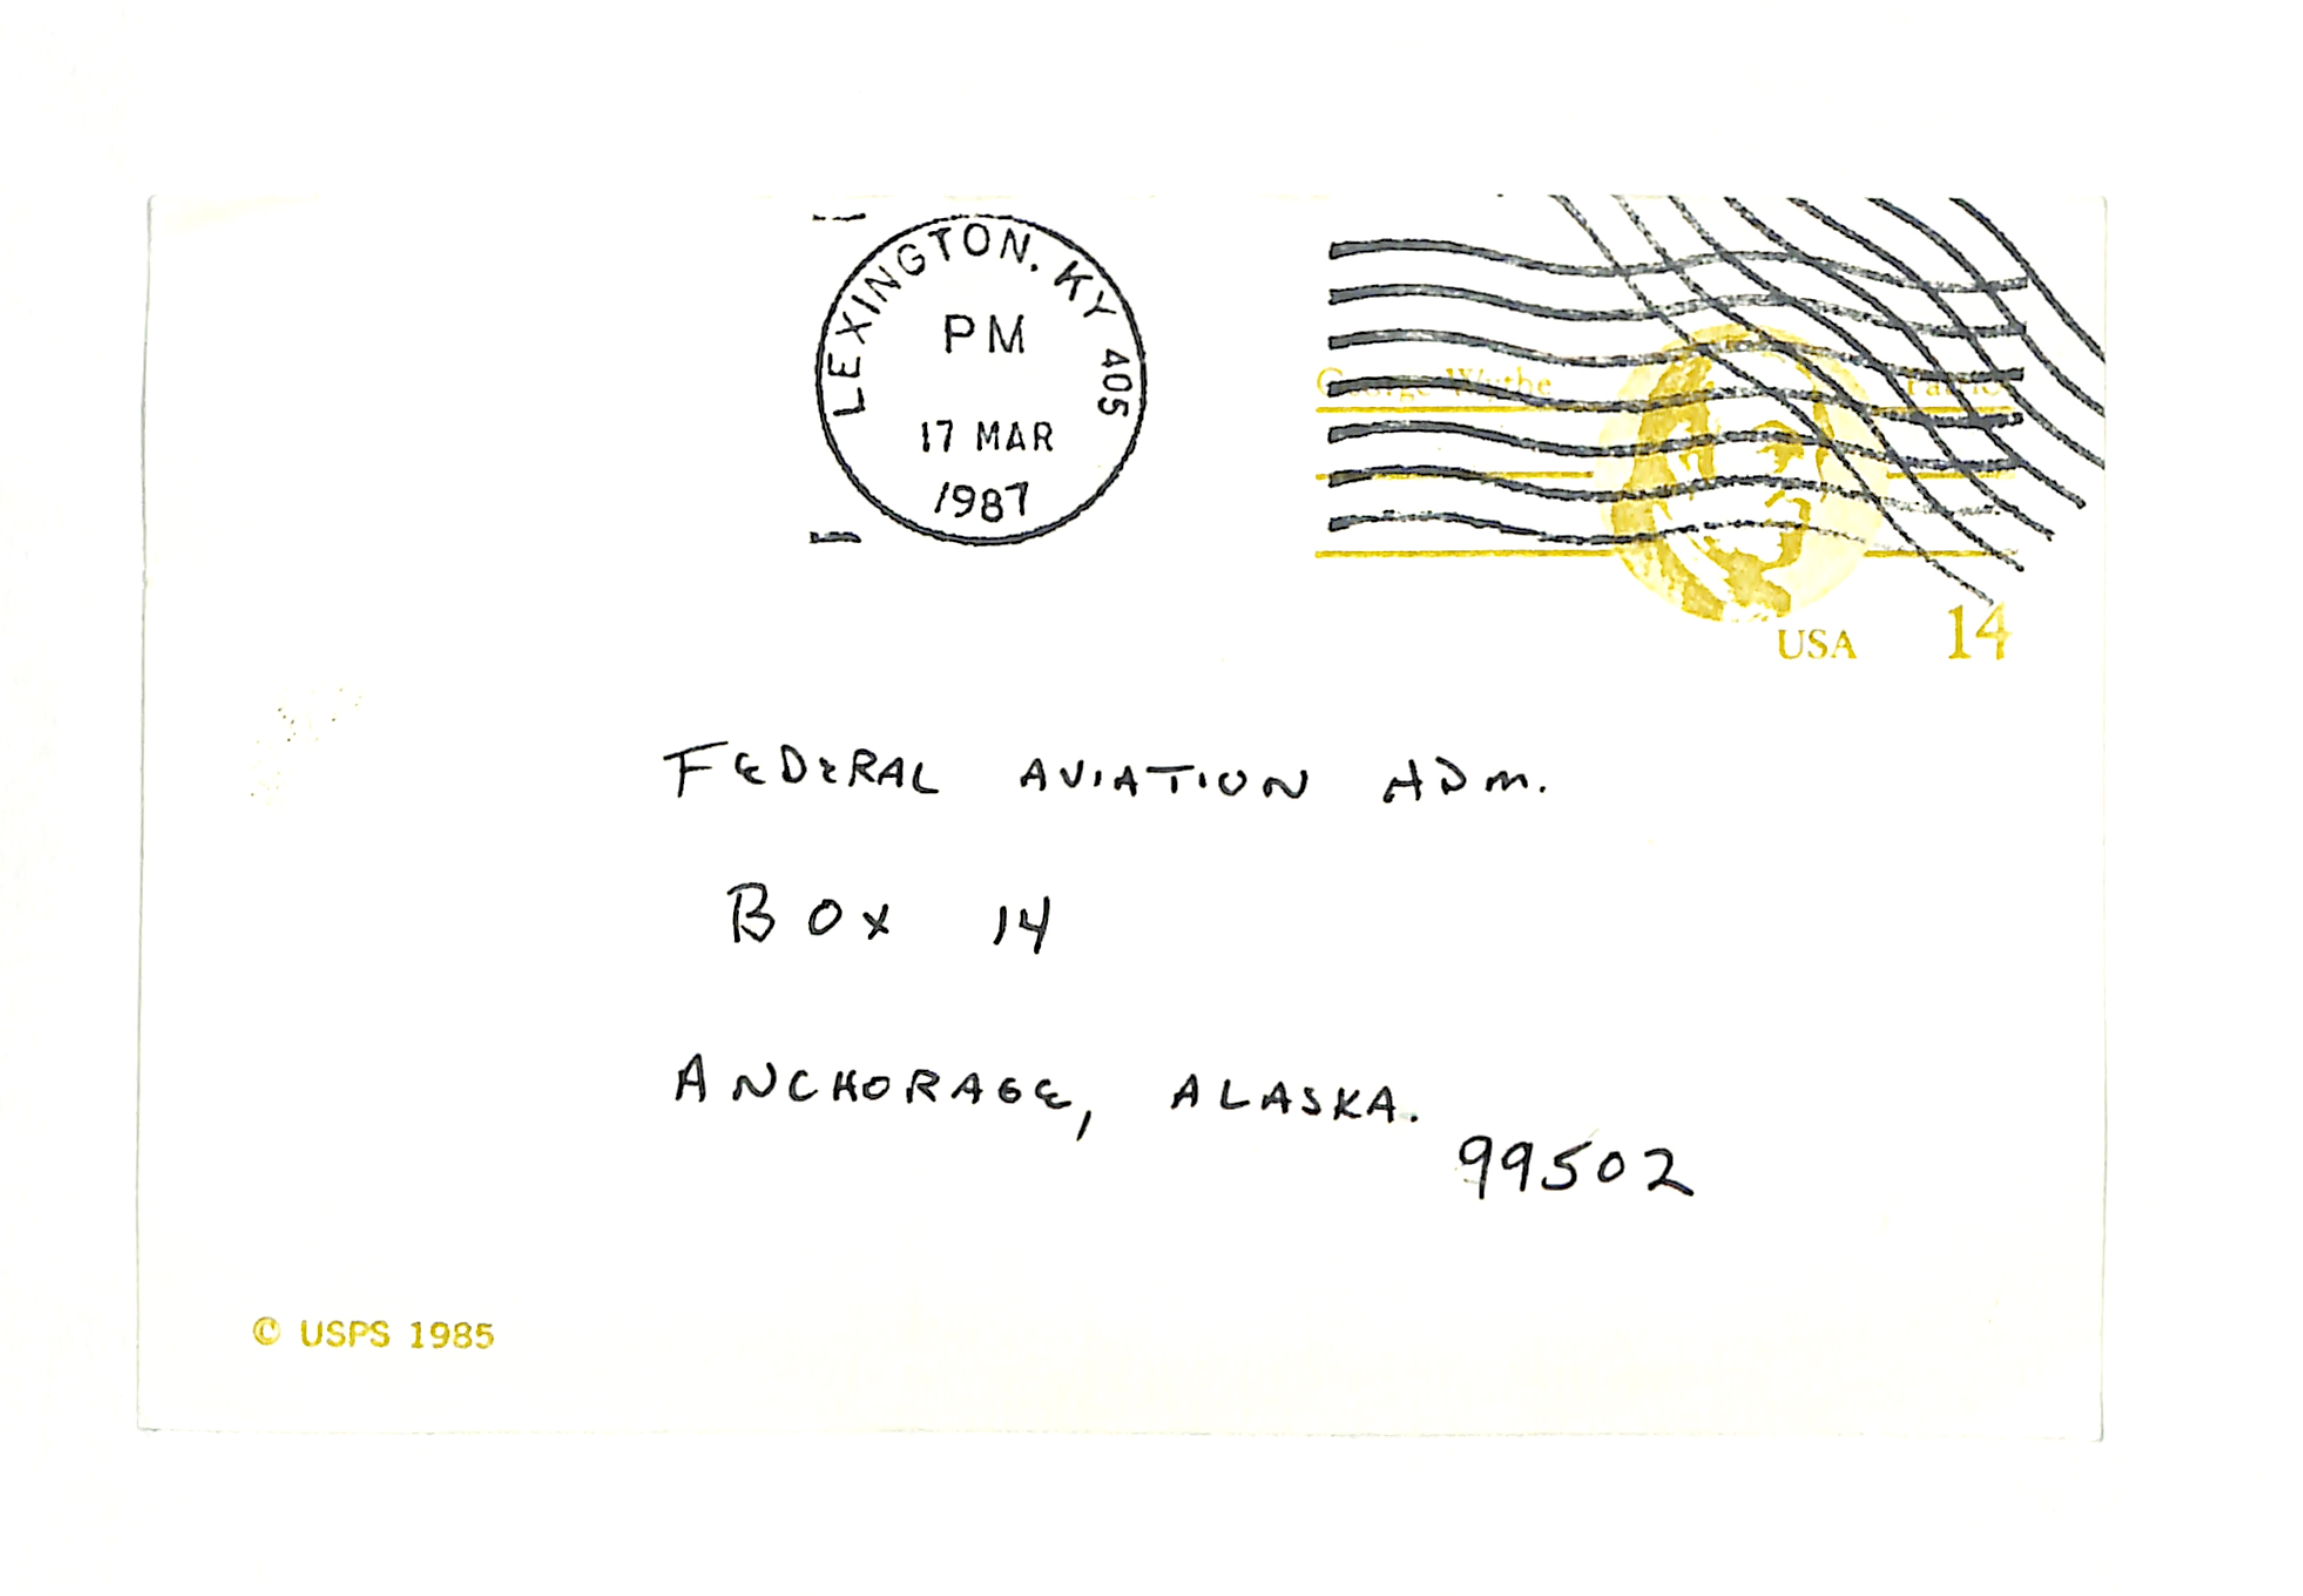 LEXINGTON, KY 405
PM
17 MAR
1987
George Wythe Patriot
USA 14
FEDERAL AVIATION ADM.
BOX 14
ANCHORAGE, ALASKA.
99502
© USPS 1985